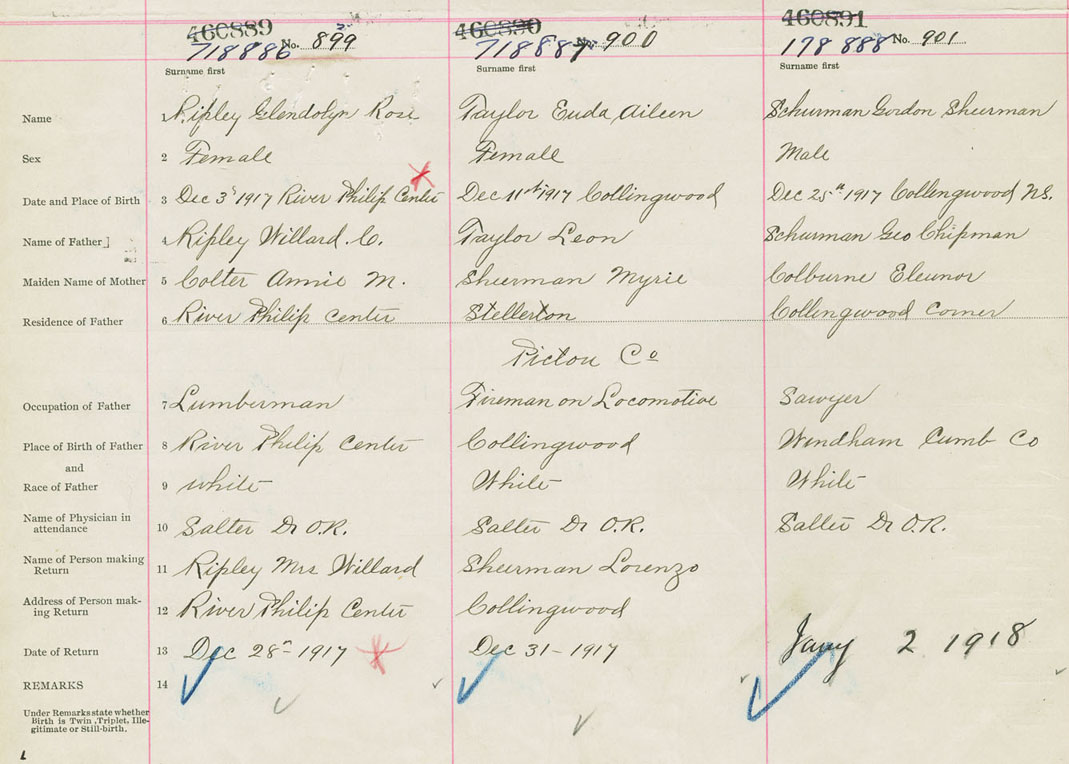 460889 460890 460891
718886 No. 899 718887 No. 900 178888 No. 901
Surname first Surname first Surname first
Name 1 Ripley Glendolyn Rose Taylor Euda Aileen Schurman Gordon Sheerman
Sex 2 Female Female Male
Date and Place of Birth 3 Dec 3 1917 River Philip Center Dec 11th 1917 Collingwood Dec 25th 1917 Collingwood N.S.
Name of Father 4 Ripley Willard C. Taylor Leon Schurman Geo Chipman
Maiden Name of Mother 5 Colter Annie M. Sheerman Myrie Colburne Eleunor
Residence of Father 6 River Philip Center Stellerton Collingwood Corner
Pictou Co
Occupation of Father 7 Lumberman Fireman on Locomotive Sawyer
Place of Birth of Father 8 River Philip Center Collingwood Windham Cumb Co
and
Race of Father 9 White White White
Name of Physician in
attendance 10 Salter Dr O.R. Salter Dr O.R. Salter Dr O.R.
Name of Person making
Return 11 Ripley Mrs Willard Sheerman Lorenzo
Address of Person mak-
ing Return 12 River Philip Center Collingwood
Date of Return 13 Dec 28th 1917 Dec 31 - 1917 Jany 2 1918
REMARKS 14
Under Remarks state whether
Birth is Twin, Triplet, Ille-
gitimate or Still-birth.
L